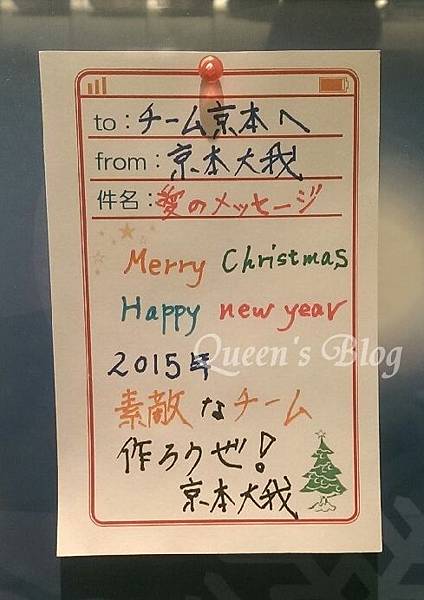 to：チーム京本へ
from：京本大我
件名：愛のメッセージ
Merry Christmas
Happy new year
Queen's Blog
2015年
素敵なチーム
作ろうぜ！
京本大我